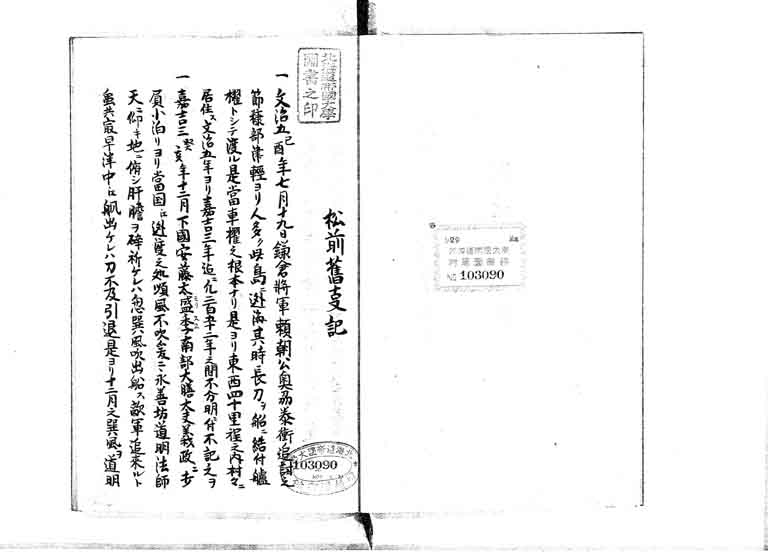 松前舊事記
一 文治五己酉年七月十九日鎌倉將軍頼朝公奥州泰衡追討之
節糠部津輕ヨリ人多ク此島ニ逃海其時長刀ヲ船ニ結付艫
櫂トシテ渡ル是當車櫂之根本ナリ是ヨリ東西四十里程之内村々ニ
居住ス文治五年ヨリ嘉吉三年迄凡二百五十二年之間不分明付不記之
一 嘉吉三癸亥年十二月下國安藤太盛季南部大膳大夫義政ニ
負小泊リヨリ當国江逃渡之処順風不吹爰ニ永善坊道明法師
天ニ仰キ地ニ俯シ肝膽ヲ碎祈ケレハ忽巽風吹出船ス敵軍追来ルト
虽共最早洋中江帆出ケレハ力不及引退是ヨリ十二月之巽風ヲ道明
北海道帝國大學
圖書之印
103090
No 103090